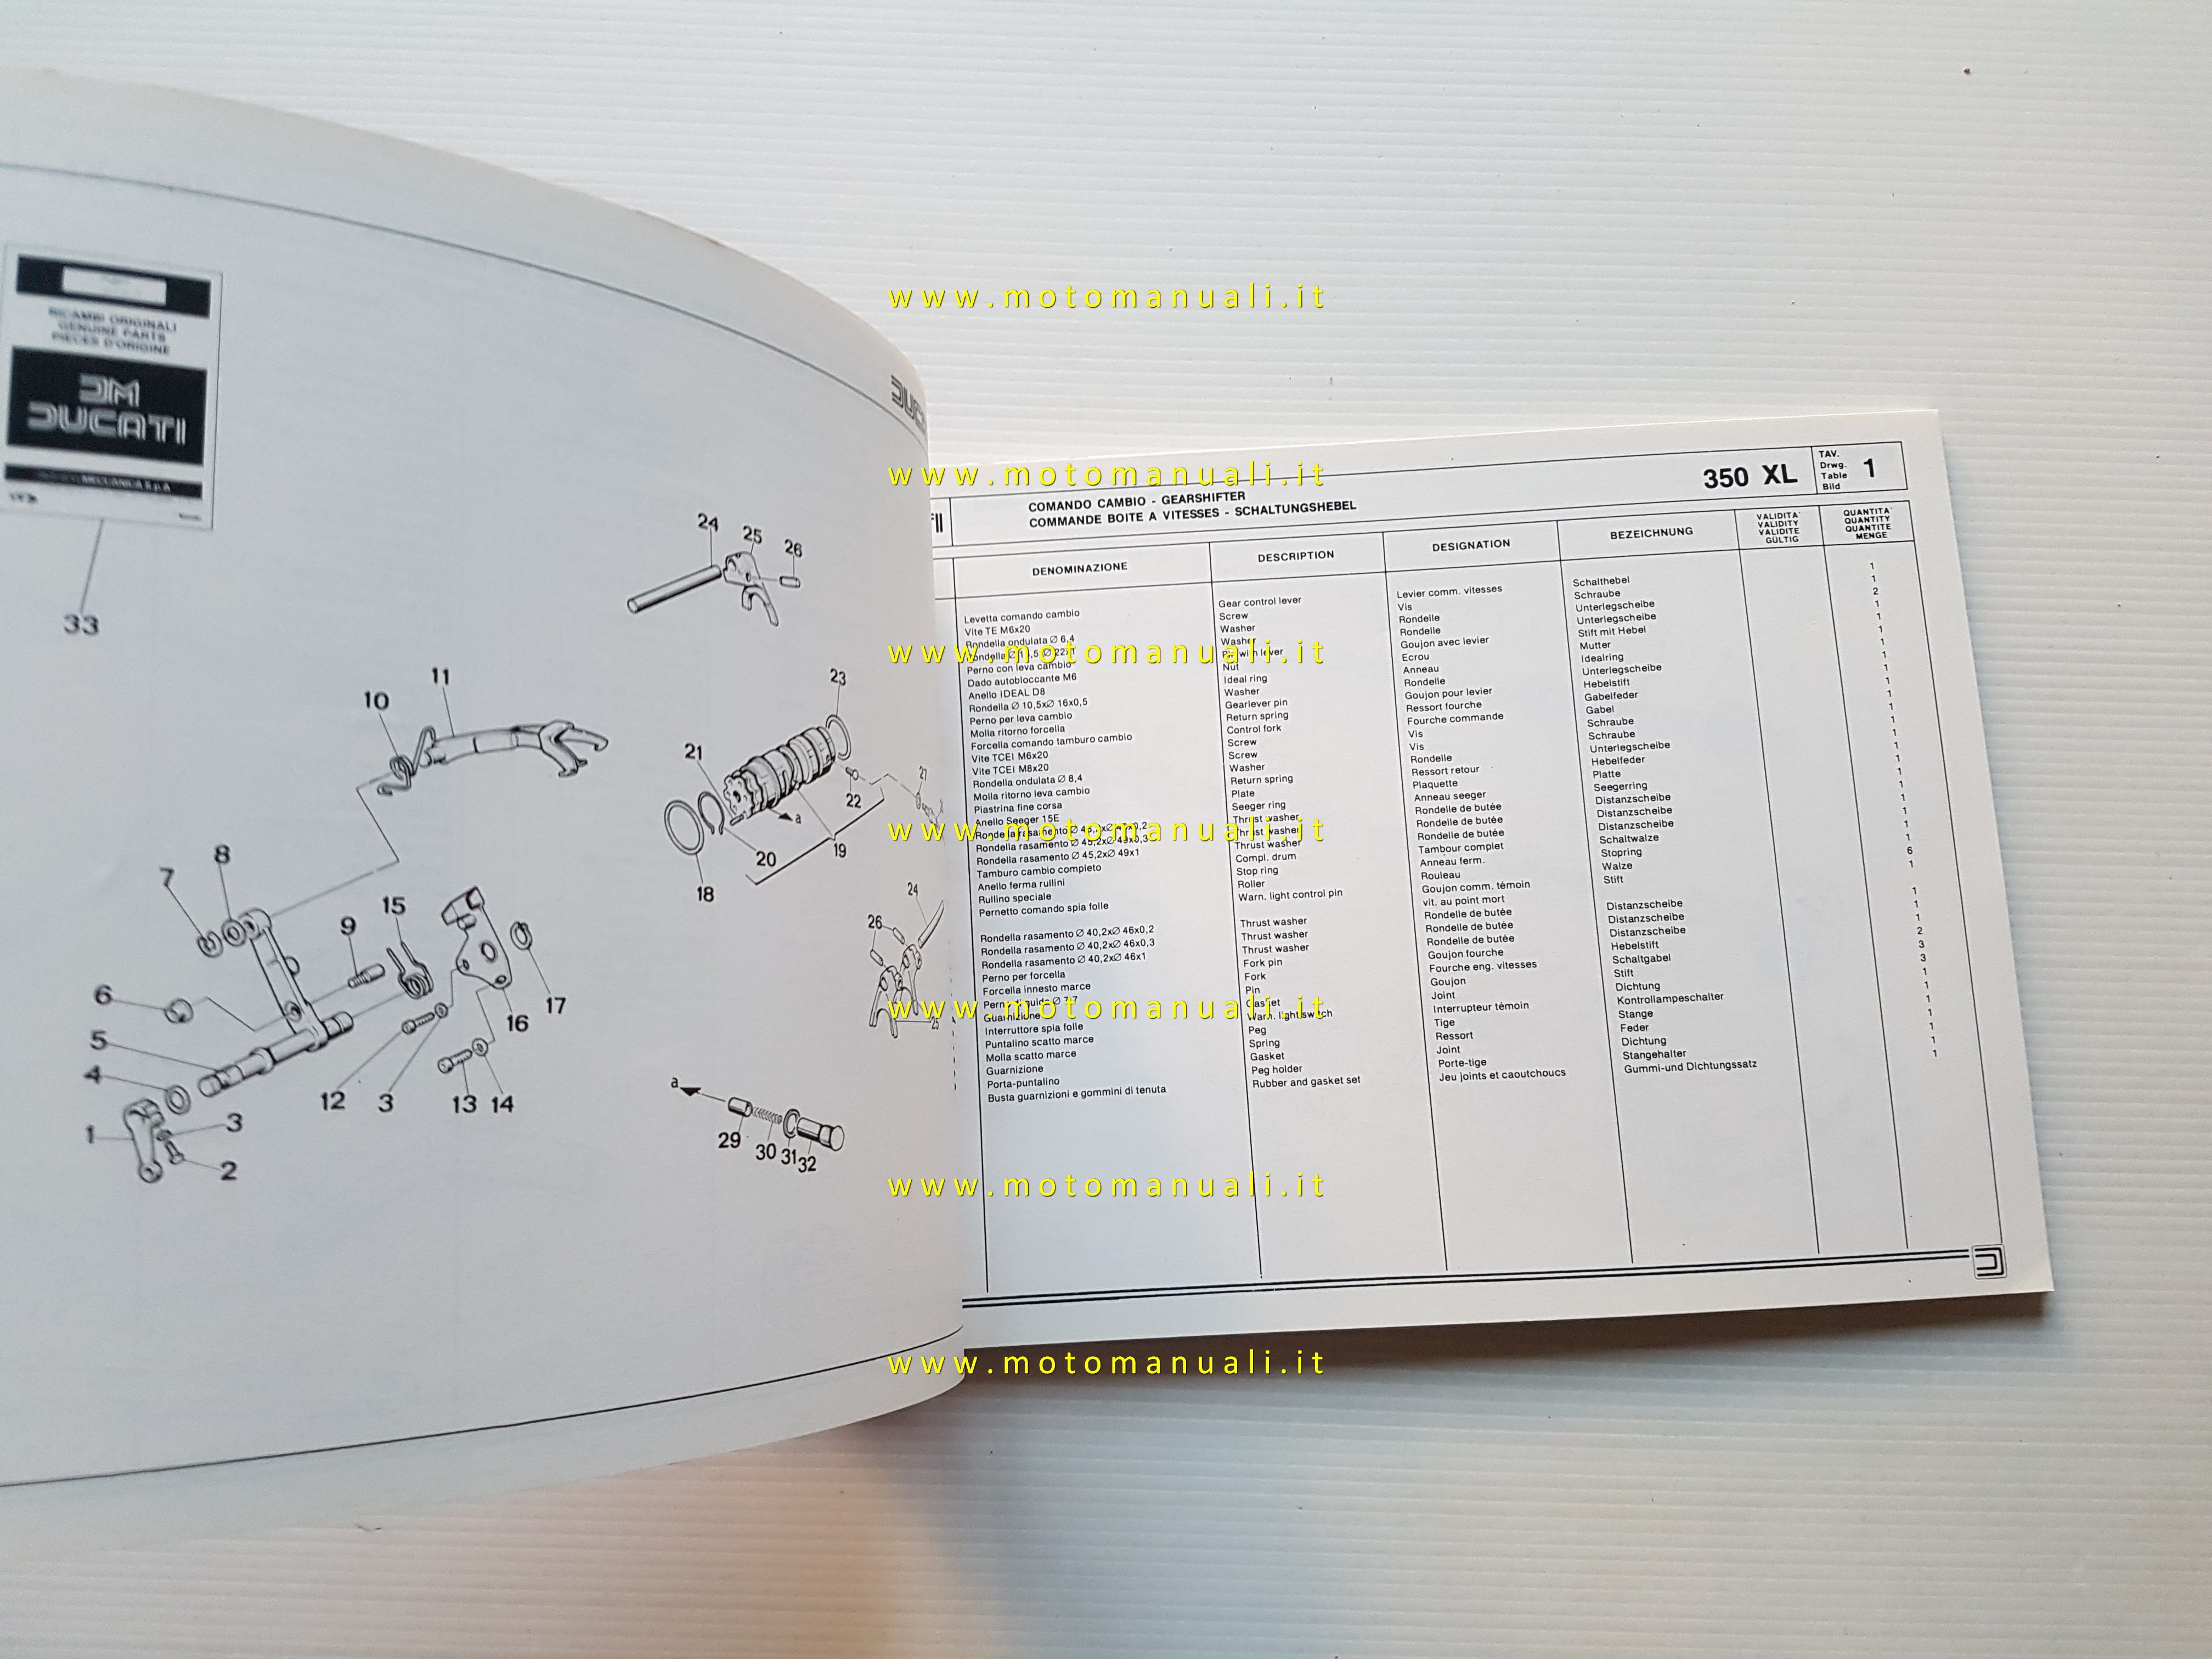 RICAMBI ORIGINALI
GENUINE PARTS
PIECES D'ORIGINE
DM
DUCATI
MECCANICA S.p.A.
33
DUCA
24
25
26
11
10
23
21
22
27
a
20
19
18
24
26
25
7
8
9
15
6
5
4
17
16
12
3
13
14
1
3
2
a
29
30
31
32
www.motomanuali.it
www.motomanuali.it
www.motomanuali.it
www.motomanuali.it
www.motomanuali.it
www.motomanuali.it
www.motomanuali.it
COMANDO CAMBIO - GEARSHIFTER
COMMANDE BOITE A VITESSES - SCHALTUNGSHEBEL
350 XL
TAV.
Drwg.
Table
Bild
1
DENOMINAZIONE
DESCRIPTION
DESIGNATION
BEZEICHNUNG
VALIDITA'
VALIDITY
VALIDITE
GÜLTIG
QUANTITA'
QUANTITY
QUANTITE
MENGE
Levetta comando cambio Gear control lever Levier comm. vitesses Schalthebel 1
Vite TE M6x20 Screw Vis Schraube 1
Rondella ondulata Ø 6,4 Washer Rondelle Unterlegscheibe 2
Rondella Washer Rondelle Unterlegscheibe 1
Perno con leva cambio Pin with lever Goujon avec levier Stift mit Hebel 1
Dado autobloccante M6 Nut Ecrou Mutter 1
Anello IDEAL D8 Ideal ring Anneau Idealring 1
Rondella Ø 10,5xØ 16x0,5 Washer Rondelle Unterlegscheibe 1
Perno per leva cambio Gearlever pin Goujon pour levier Hebelstift 1
Molla ritorno forcella Return spring Ressort fourche Gabelfeder 1
Forcella comando tamburo cambio Control fork Fourche commande Gabel 1
Vite TCEI M6x20 Screw Vis Schraube 1
Vite TCEI M8x20 Screw Vis Schraube 1
Rondella ondulata Ø 8,4 Washer Rondelle Unterlegscheibe 1
Molla ritorno leva cambio Return spring Ressort retour Hebelfeder 1
Piastrina fine corsa Plate Plaquette Platte 1
Anello Seeger 15E Seeger ring Anneau seeger Seegerring 1
Rondella rasamento Thrust washer Rondelle de butée Distanzscheibe 1
Rondella rasamento Ø 45,2xØ 49x0,3 Thrust washer Rondelle de butée Distanzscheibe 1
Rondella rasamento Ø 45,2xØ 49x1 Thrust washer Rondelle de butée Distanzscheibe 1
Tamburo cambio completo Compl. drum Tambour complet Schaltwalze 1
Anello ferma rullini Stop ring Anneau ferm. Stopring 1
Rullino speciale Roller Rouleau Walze 6
Pernetto comando spia folle Warn. light control pin Goujon comm. témoin Stift 1
vit. au point mort
Rondella rasamento Ø 40,2xØ 46x0,2 Thrust washer Rondelle de butée Distanzscheibe 1
Rondella rasamento Ø 40,2xØ 46x0,3 Thrust washer Rondelle de butée Distanzscheibe 1
Rondella rasamento Ø 40,2xØ 46x1 Thrust washer Rondelle de butée Distanzscheibe 1
Perno per forcella Fork pin Goujon fourche Hebelstift 2
Forcella innesto marce Fork Fourche eng. vitesses Schaltgabel 3
Pin Goujon Stift 3
Guarnizione Gasket Joint Dichtung 1
Interruttore spia folle Warn. light switch Interrupteur témoin Kontrollampeschalter 1
Puntalino scatto marce Peg Tige Stange 1
Molla scatto marce Spring Ressort Feder 1
Guarnizione Gasket Joint Dichtung 1
Porta-puntalino Peg holder Porte-tige Stangehalter 1
Busta guarnizioni e gommini di tenuta Rubber and gasket set Jeu joints et caoutchoucs Gummi-und Dichtungssatz 1